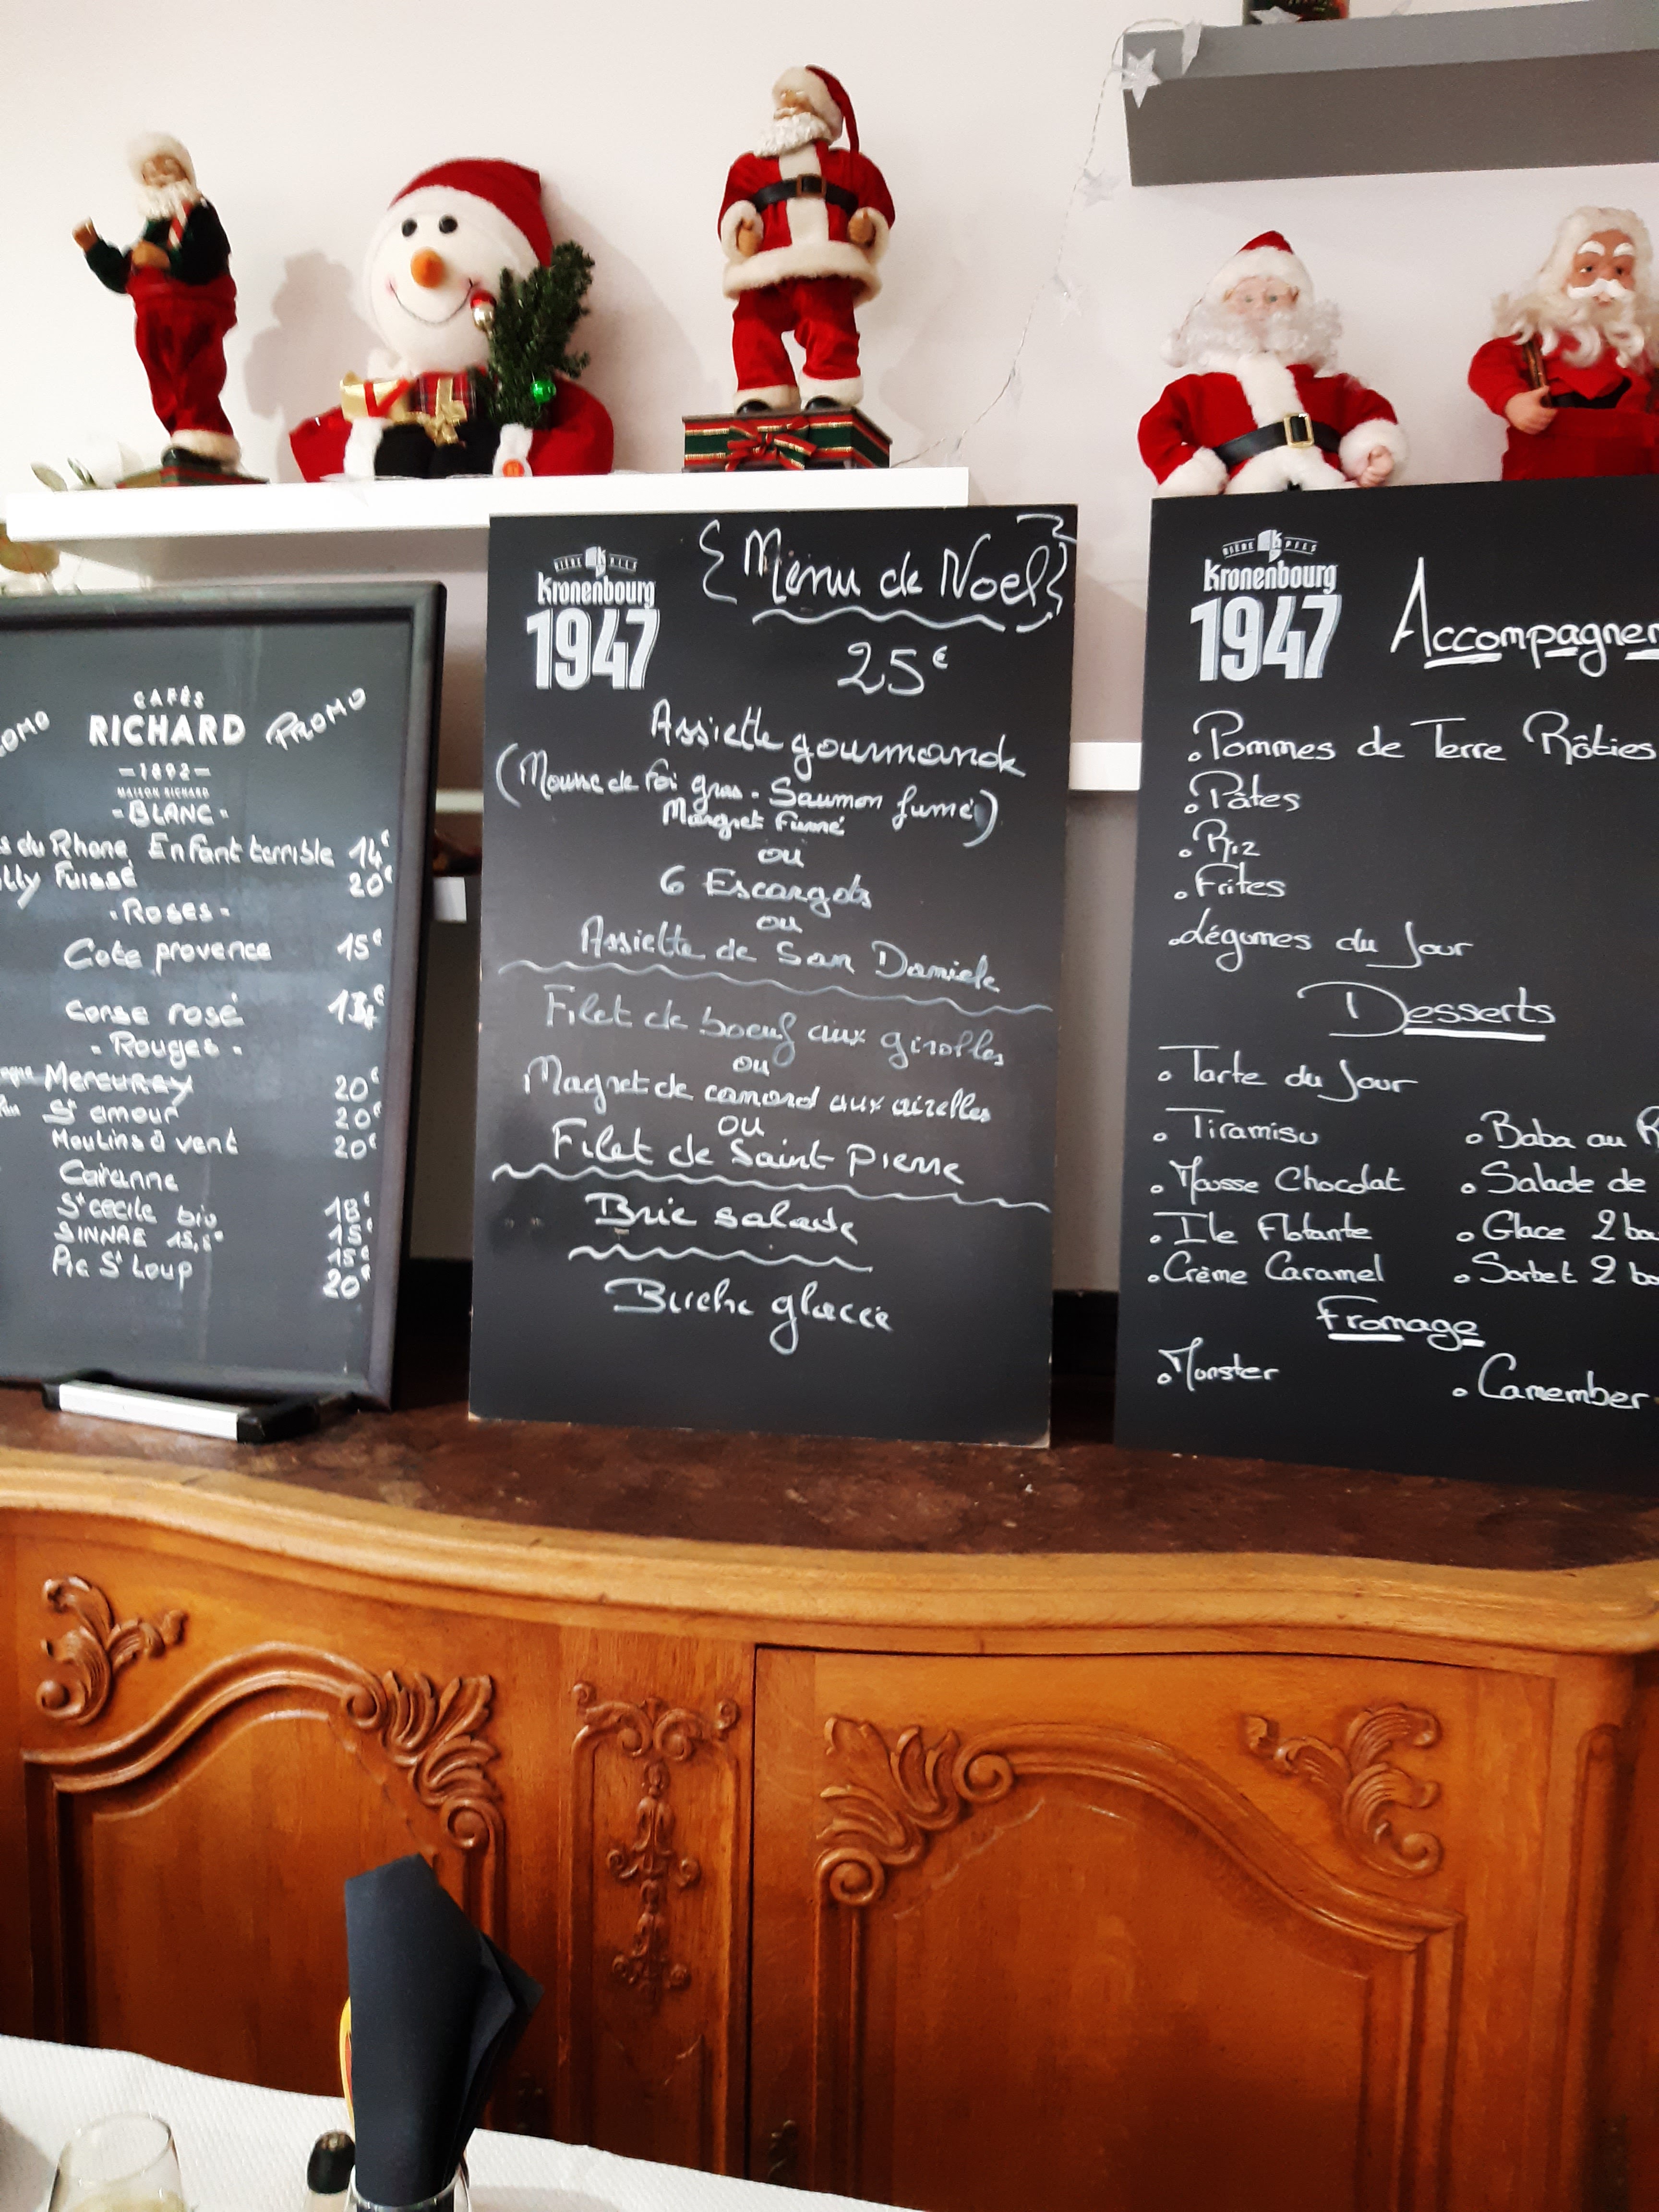 CAFÉS
RICHARD
PROMO
1892
MAISON RICHARD
- BLANC -
du Rhone Enfant terrible 14€
Fuissé 20€
- Roses -
Cote provence 15€
Corse rosé
- Rouges -
Mercuray 20€
St amour 20€
Moulins à vent 20€
Cairanne
St cecile bio 18€
SINNAE 15€
15€
Pic St Loup 20€
BIÈRE PILS
Kronenbourg
1947
{Menu de Noel}
25€
Assiette gourmande
(Mousse de foi gras - Saumon fumé)
Margret Fumé
ou
6 Escargots
ou
Assiette de San Daniele
Filet de boeuf aux girolles
ou
Magret de canard aux airelles
ou
Filet de Saint Pierre
Brie salade
Buche glacée
BIÈRE PILS
Kronenbourg
1947
Accompagnem
. Pommes de Terre Rôties
. Pâtes
. Riz
. Frites
. légumes du Jour
Desserts
. Tarte du Jour
. Tiramisu
. Baba au R
. Mousse Chocolat
. Salade de
. Ile Flotante
. Glace 2 bo
. Crème Caramel
. Sorbet 2 bo
Fromage
. Monster
. Camember